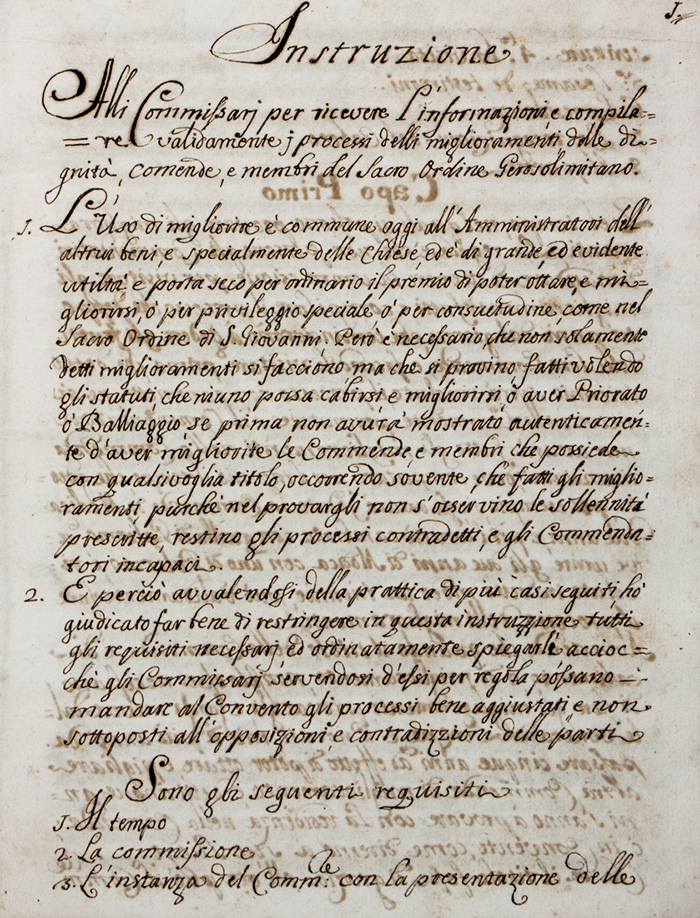 1.
Instruzione
Alli Commissarj per ricevere l'informazioni e compila=
=re validamente j processi delli miglioramenti delle di=
gnità, comende, e membri del Sacro Ordine Gerosolimitano.
1. L'Uso di migliorire è commune oggi all'Amministratori dell'
altrui beni, e specialmente delle Chiese, ed è di grande, ed evidente
utiltà e porta seco per ordinario il premio di poter ottare, e mi=
gliorirsi, ò per privileggio speciale ò per consuetudine, come nel
Sacro Ordine di S. Giovanni. Però è necessario, che non solamente
detti miglioramenti si facciono, ma che si provino fatti volendo
gli statuti, che niuno possa cabirsi e migliorirsi, ò aver Priorato
ò Balliaggio se prima non avurà mostrato autenticamen=
te d'aver migliorite le Commende, e membri che possiede
con qualsivoglia titolo, occorrendo sovente, che fatti gli miglio=
ramenti, purchè nel provargli non s'osservino le sollennità
prescritte, restino gli processi contradetti, e gli Commenda=
tori incapaci.
2. E perciò avvalendosi della prattica di più casi seguiti hò
giudicato far bene di restringere in questa instruzzione tutti
gli requisiti necessarj ed ordinatamente spiegarli accioc=
chè gli Commissarj servendosi d'essi per regola possano
mandare al Convento gli processi bene aggiustati e non
sottoposti all'opposizioni, e contradizzioni delle parti
Sono gli seguenti requisiti
1. Il tempo
2. La commissione
3. L'instanza del Comm:re con la presentazione delle